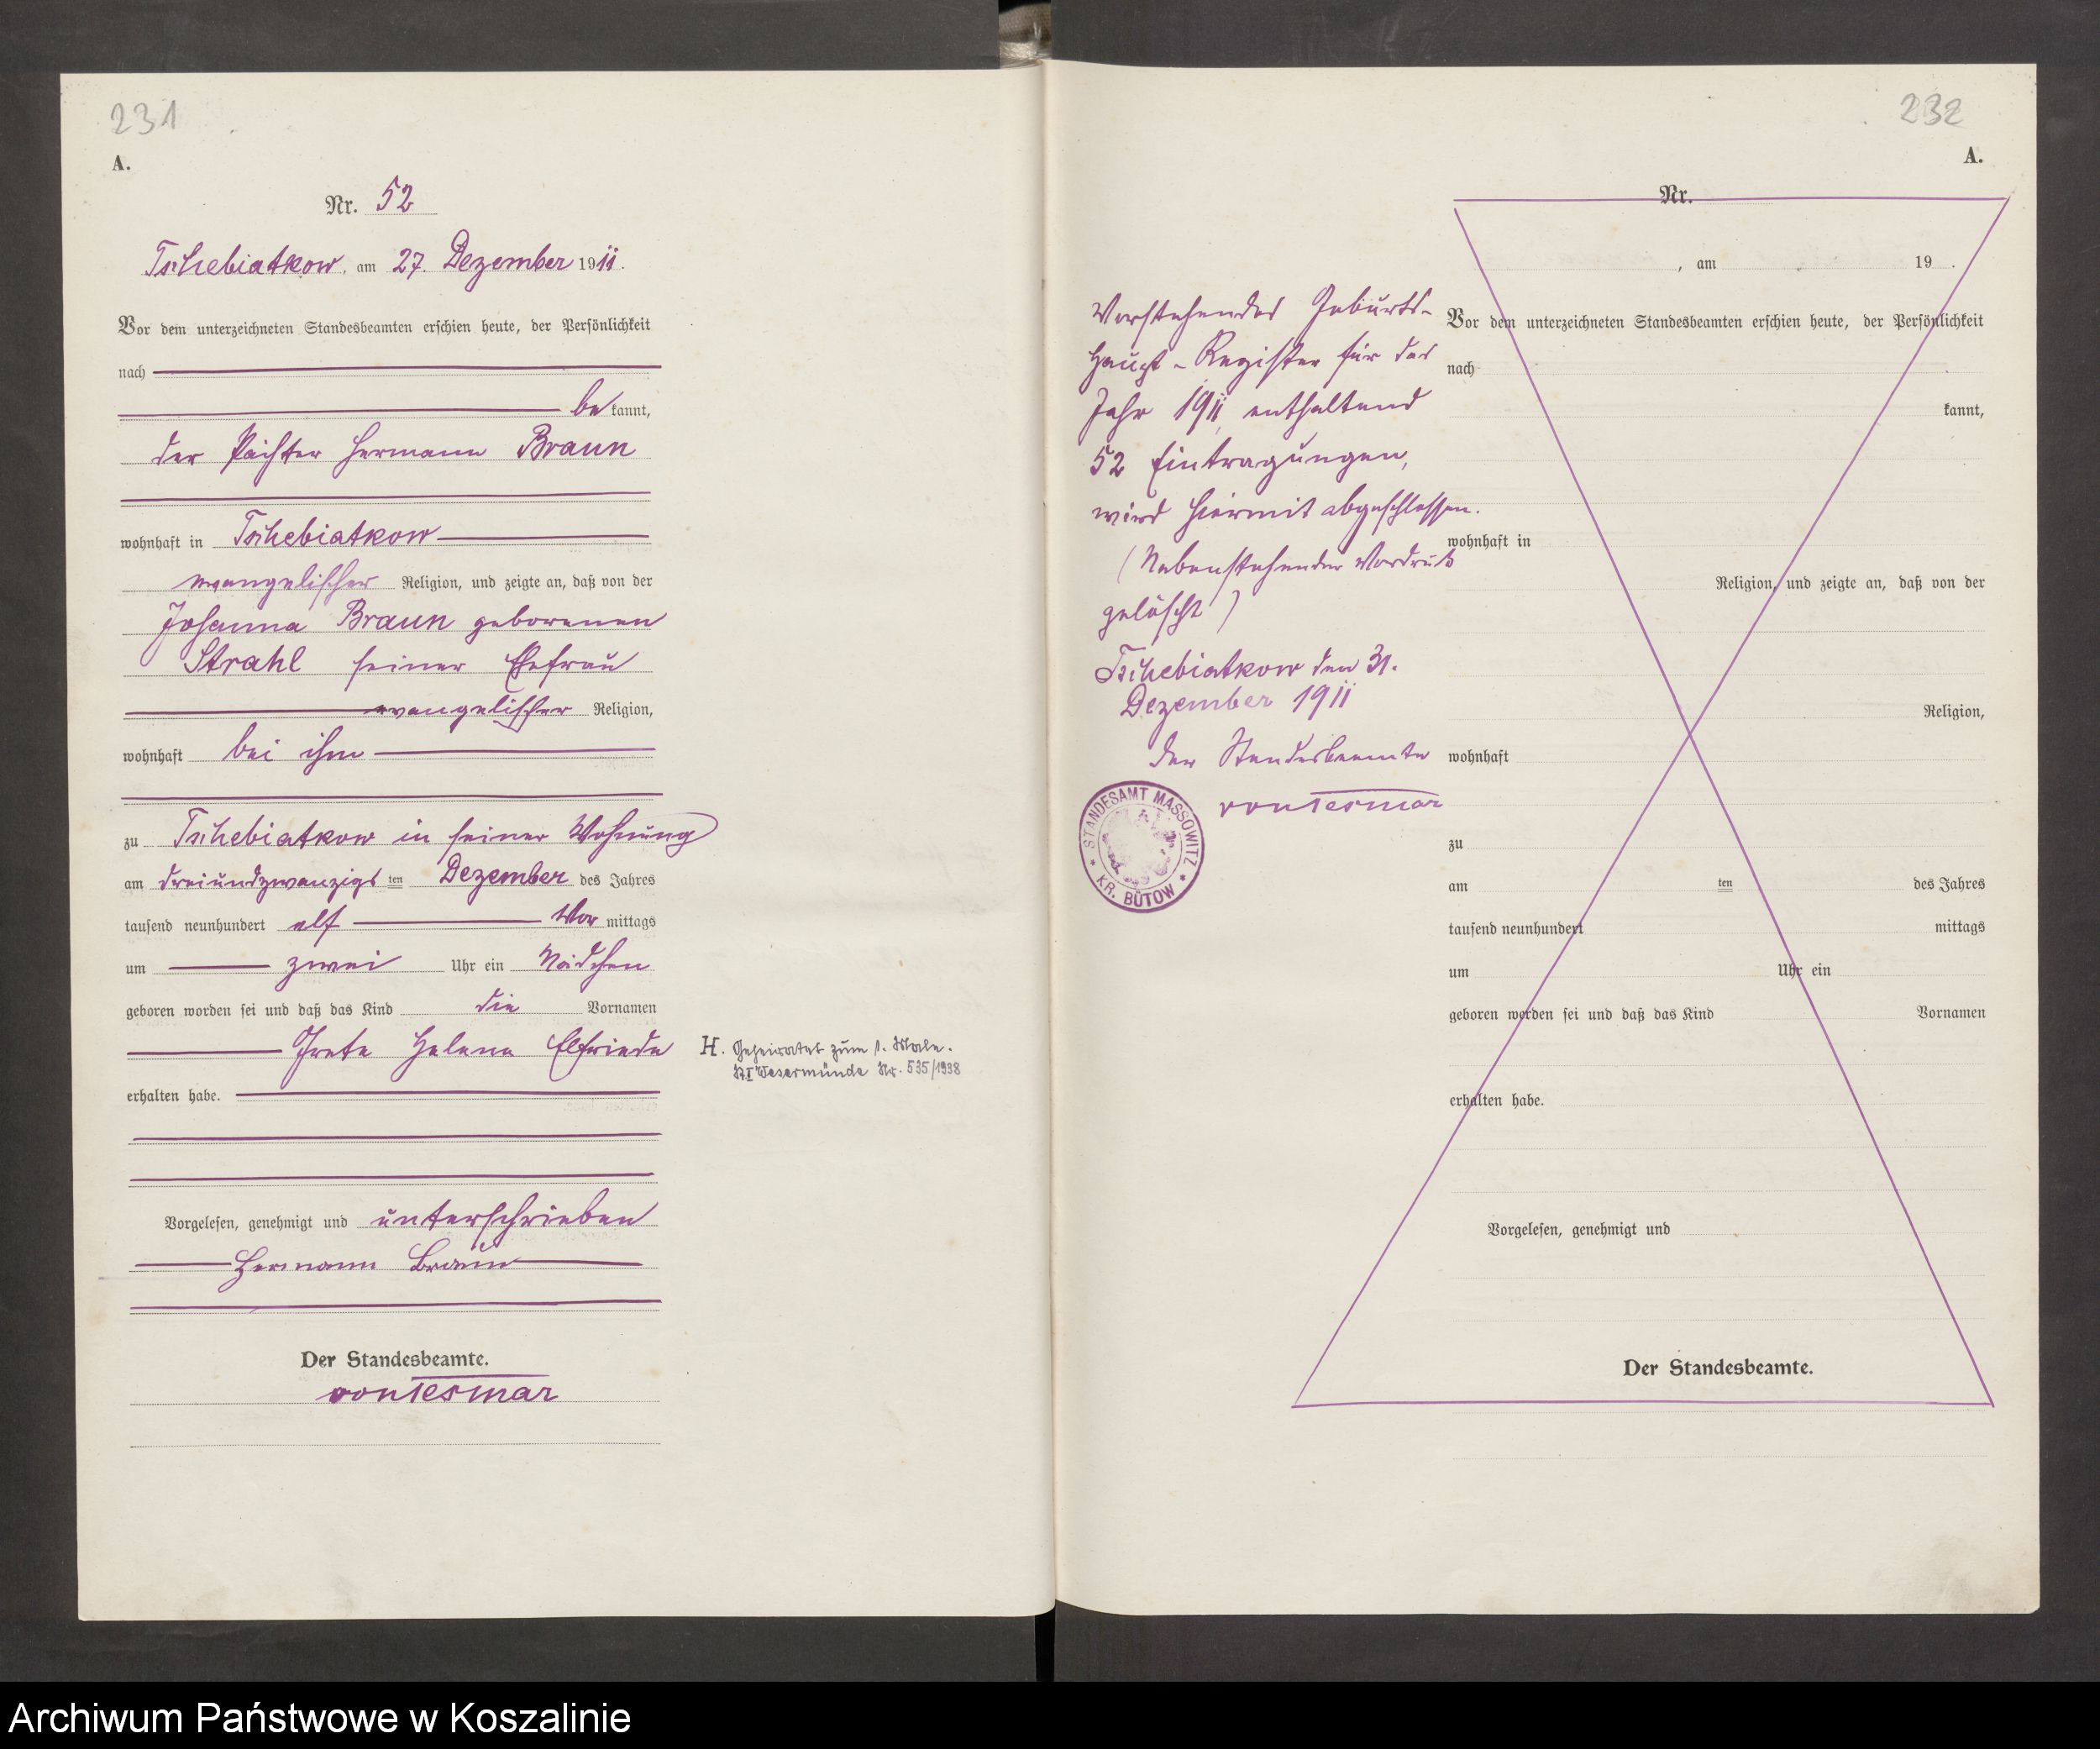 231
A.
Nr. 52
Tschebiatkow, am 27. Dezember 1911.
Vor dem unterzeichneten Standesbeamten erschien heute, der Persönlichkeit
nach
be kannt,
der Pächter Hermann Braun
wohnhaft in Tschebiatkow
evangelischer Religion, und zeigte an, daß von der
Johanna Braun geborenen
Strahl seiner Ehefrau
evangelischer Religion,
wohnhaft bei ihm
zu Tschebiatkow in seiner Wohnung
am dreiundzwanzigst ten Dezember des Jahres
tausend neunhundert elf Vor mittags
um zwei Uhr ein Mädchen
geboren worden sei und daß das Kind die Vornamen
Helene Elfriede
erhalten habe.
Vorgelesen, genehmigt und unterschrieben
Hermann Braun
Der Standesbeamte.
von Tesmar
H. Geheiratet zum 1. Male.
StA I Wesermünde Nr. 535/1938
232
A.
Vorstehendes Geburts-
Haupt-Register für das
Jahr 1911, enthaltend
52 Eintragungen,
wird hiermit abgeschlossen.
(Nebenstehender Vordruck
gelöscht)
Tschebiatkow den 31.
Dezember 1911
Der Standesbeamte
von Tesmar
STANDESAMT MASSOWITZ
* KR. BÜTOW *
Nr.
, am 19 .
Vor dem unterzeichneten Standesbeamten erschien heute, der Persönlichkeit
nach
kannt,
wohnhaft in
Religion, und zeigte an, daß von der
Religion,
wohnhaft
zu
am ten des Jahres
tausend neunhundert mittags
um Uhr ein
geboren worden sei und daß das Kind Vornamen
erhalten habe.
Vorgelesen, genehmigt und
Der Standesbeamte.
Archiwum Państwowe w Koszalinie